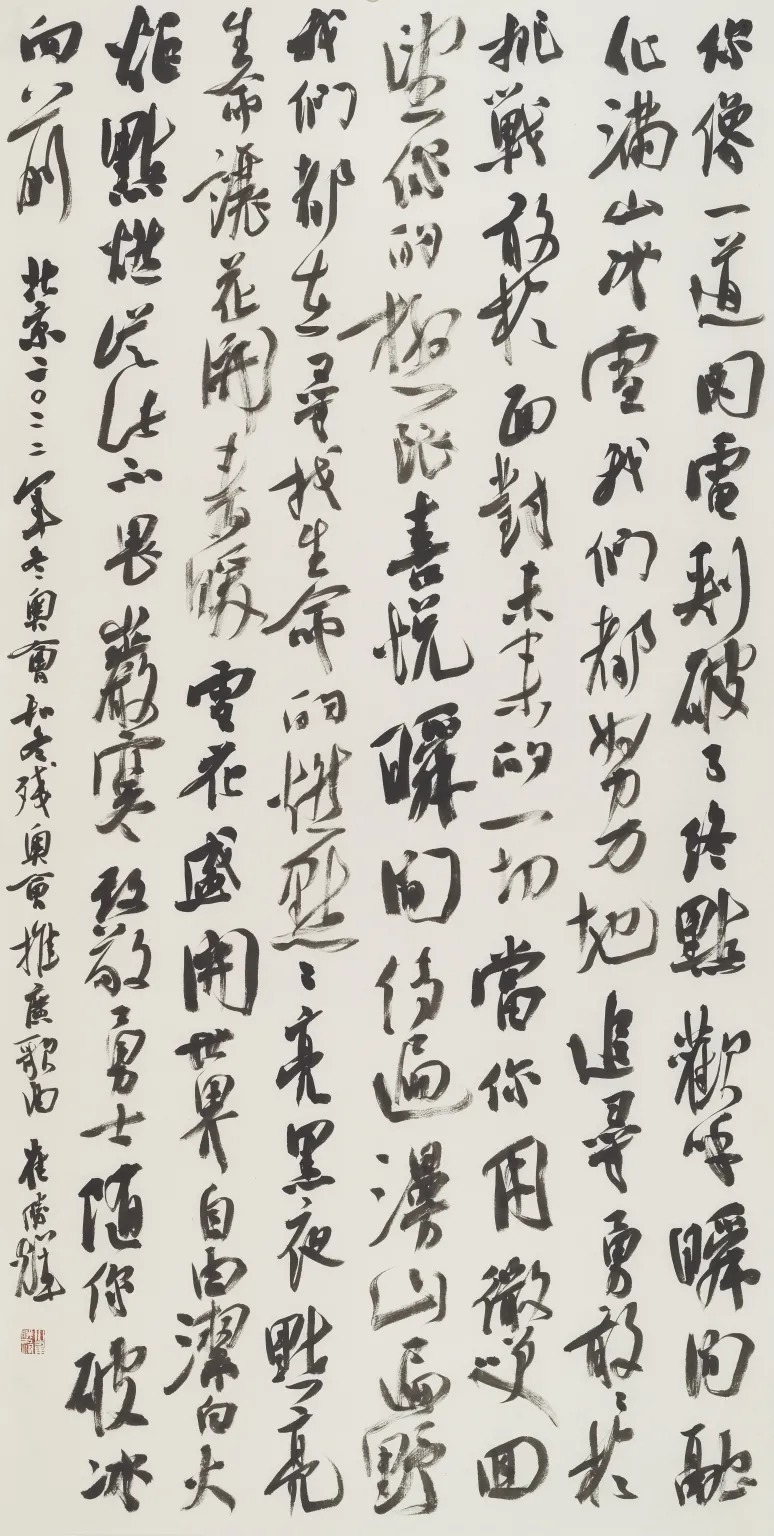 你像一道闪電刺破了終點歡呼瞬间融
化满山冰雪我们都努力地追尋勇敢敢於
挑戰敢於面對未来的一切當你用微笑回
望你的極限喜悦瞬间傳遍漫山遍野
我們都在尋找生命的燃點點亮黑夜點亮
生命讓花開春暖雪花盛開世界自由潔白火
炬點燃從此不畏嚴寒致敬勇士随你破冰
向前
北京二〇二二年冬奥會和冬残奥會推廣歌曲 崔勝輝